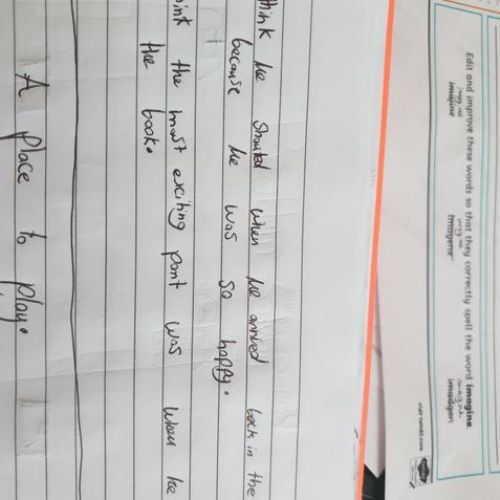 Edit and improve these words so that they correctly spell the word imagine.
imajine imagene imadgen
visit twinkl.com
think he shouted when he arrived back in the
because he was so happy.
the most exciting part was when he
the book.
A place to play.